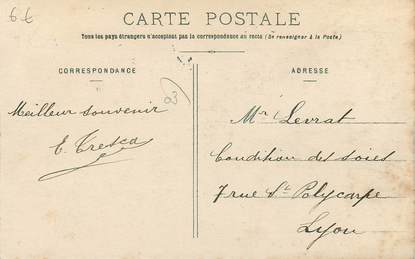 6€
CARTE POSTALE
Tous les pays étrangers n'acceptent pas la correspondance au recto (Se renseigner à la Poste)
CORRESPONDANCE
ADRESSE
03
Meilleur souvenir
E. Tresca
Mr Levrat
Condition des soies
7 rue St Polycarpe
Lyon